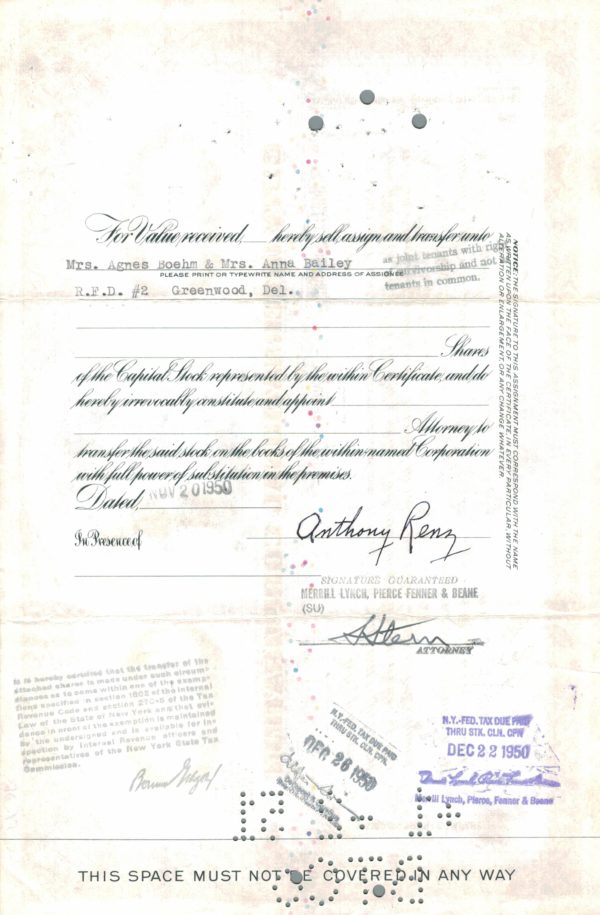 For Value received, hereby sell, assign and transfer unto
Mrs. Agnes Boehm & Mrs. Anna Bailey
as joint tenants with right
survivorship and not
tenants in common.
PLEASE PRINT OR TYPEWRITE NAME AND ADDRESS OF ASSIGNEE
R.F.D. #2 Greenwood, Del.
Shares
of the Capital Stock represented by the within Certificate, and do
hereby irrevocably constitute and appoint
Attorney to
transfer the said stock on the books of the within-named Corporation
with full power of substitution in the premises.
Dated, NOV 20 1950
In Presence of
Anthony Renz
SIGNATURE GUARANTEED
MERRILL LYNCH, PIERCE FENNER & BEANE
(SU)
S Stern
ATTORNEY
NOTICE: THE SIGNATURE TO THIS ASSIGNMENT MUST CORRESPOND WITH THE NAME
AS WRITTEN UPON THE FACE OF THE CERTIFICATE, IN EVERY PARTICULAR, WITHOUT
ALTERATION OR ENLARGEMENT, OR ANY CHANGE WHATEVER.
It is hereby certified that the transfer of the
attached shares is made under such circum-
stances as to come within one of the exemp-
tions specified in section 1802 of the Internal
Revenue Code and section 270-5 of the Tax
Law of the State of New York and that evi-
dence in proof of the exemption is maintained
by the undersigned and is available for in-
spection by Internal Revenue officers and
representatives of the New York State Tax
Commission.
N.Y.-FED. TAX DUE PAID
THRU STK. CLR. CPN.
DEC 26 1950
N.Y.-FED. TAX DUE PAID
THRU STK. CLR. CPN.
DEC 22 1950
Merrill Lynch, Pierce, Fenner & Beane
THIS SPACE MUST NOT BE COVERED IN ANY WAY